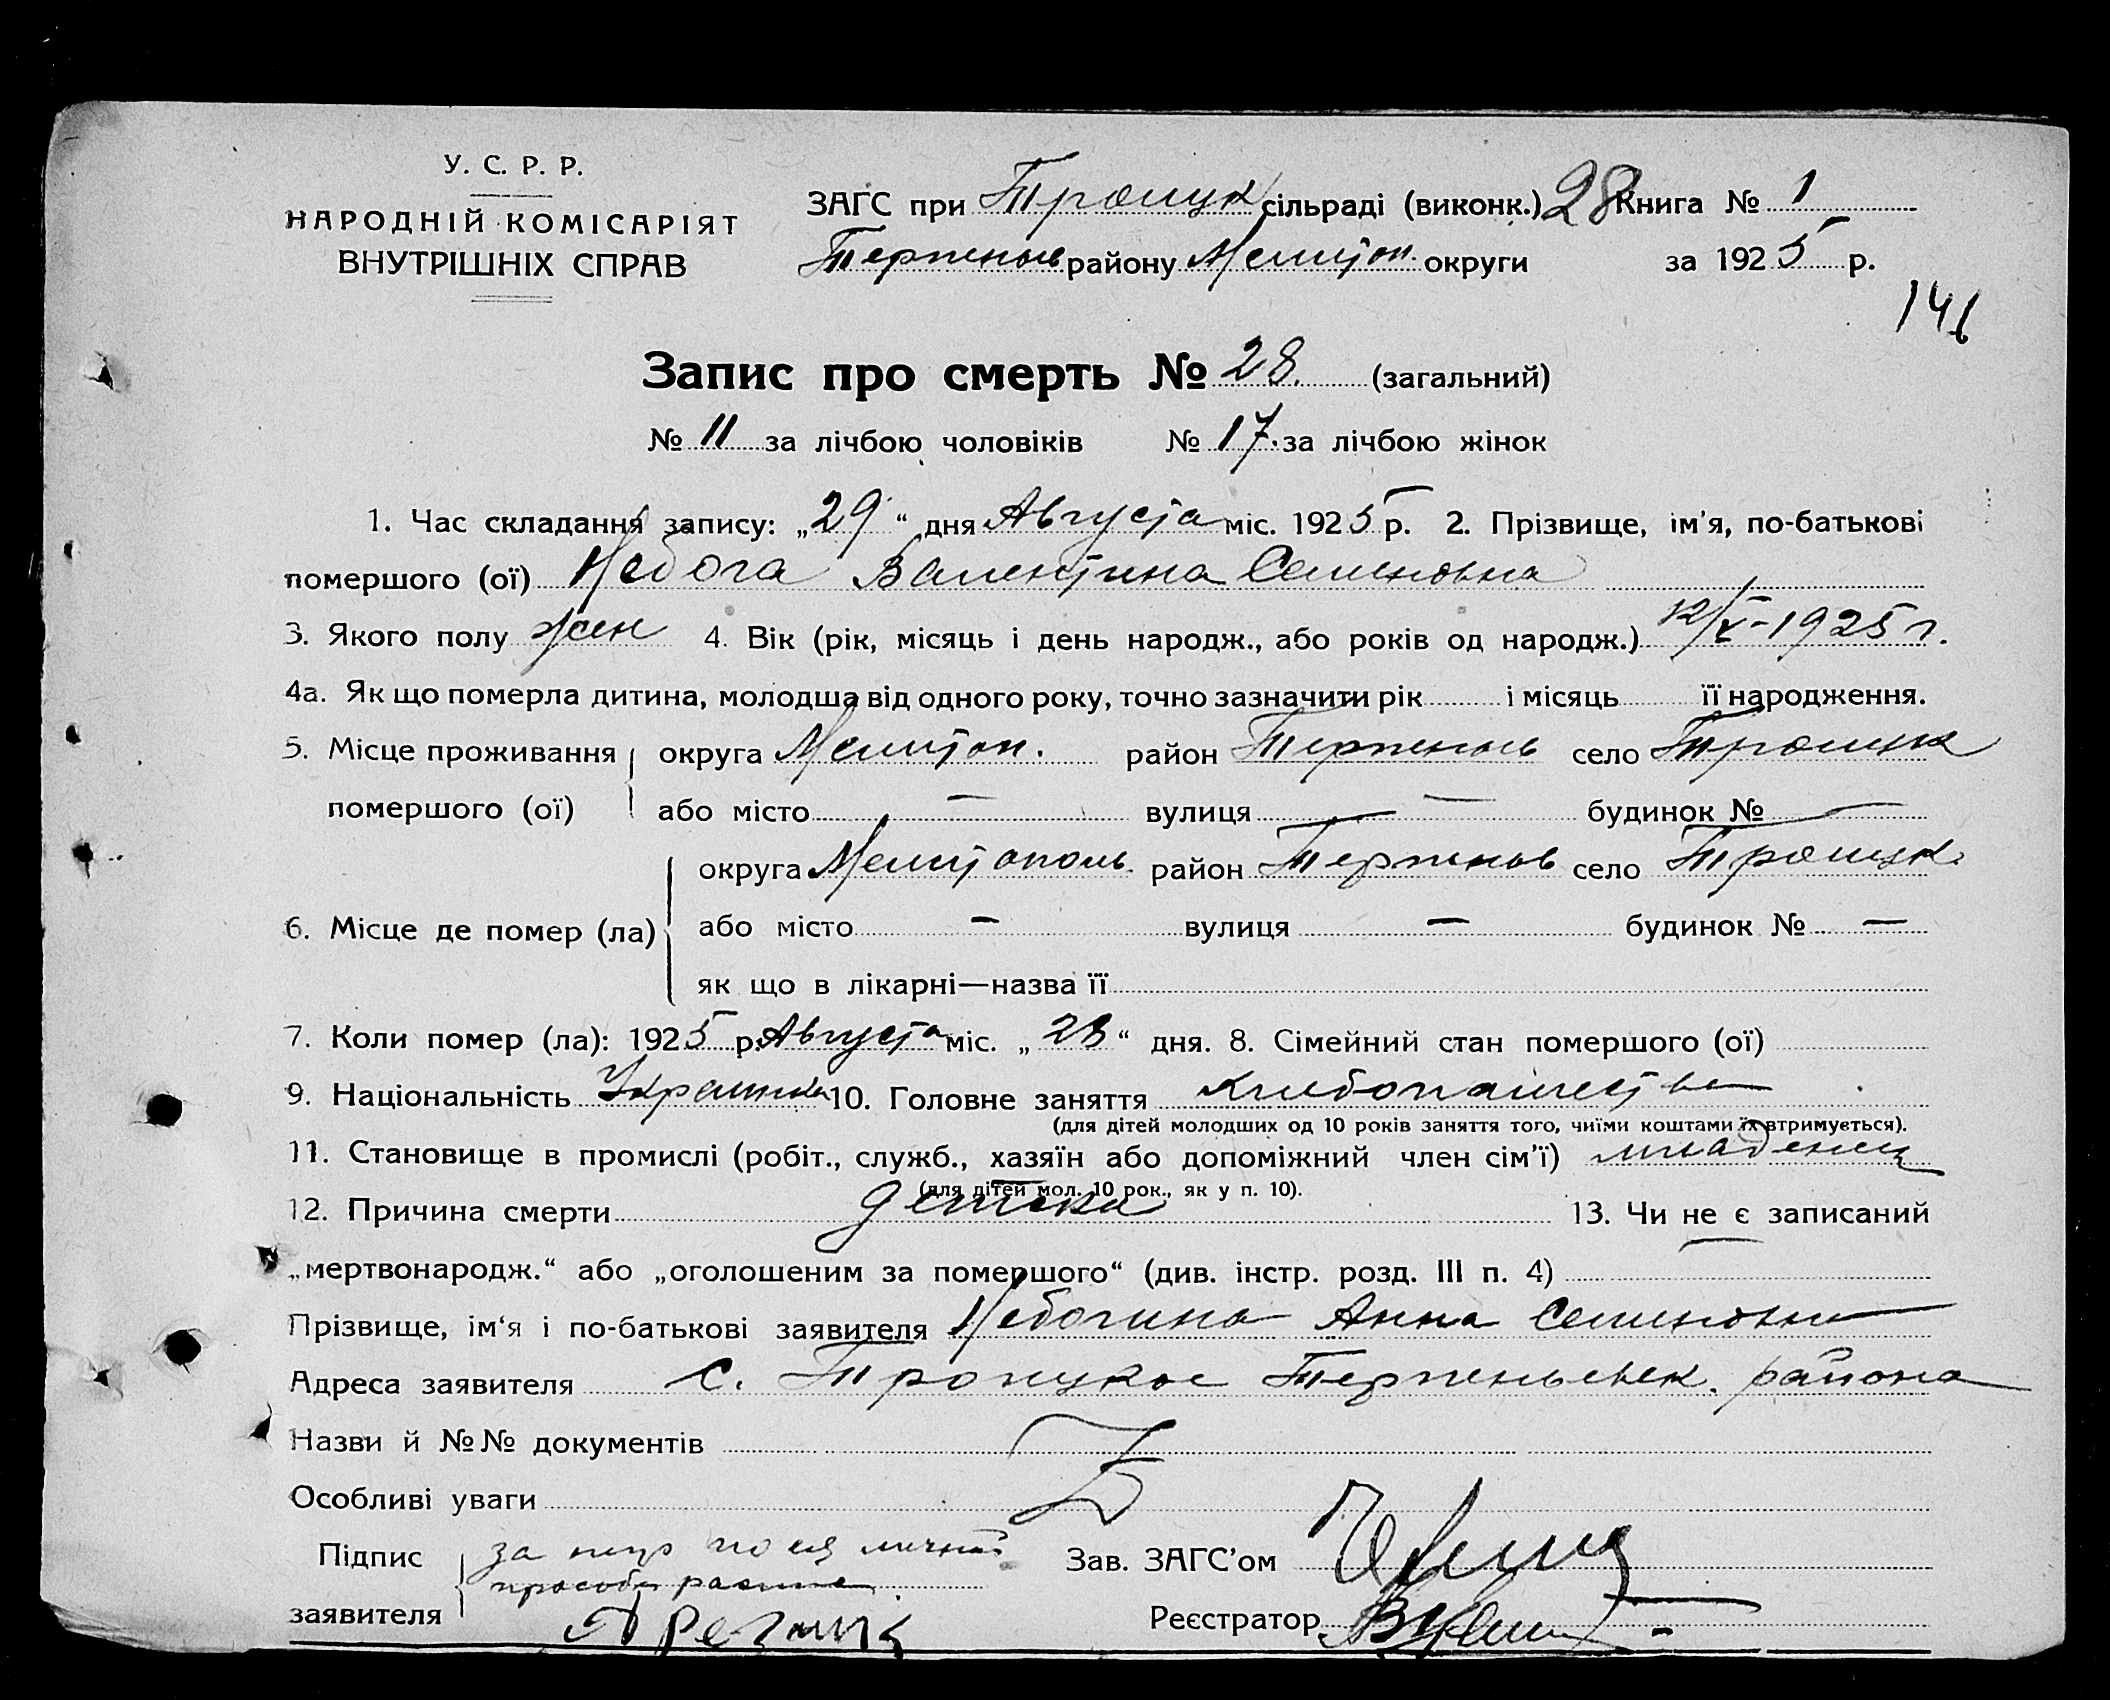 У. С. Р. Р.
НАРОДНІЙ КОМІСАРІЯТ
ВНУТРІШНІХ СПРАВ
ЗАГС при Троицк сільраді (виконк.) 28 Книга № 1
Терпеньев району Мелитоп. округи за 1925 р.
141
Запис про смерть № 28. (загальний)
№ 11 за лічбою чоловіків № 17. за лічбою жінок
1. Час складання запису: „29“ дня Августа міс. 1925 р. 2. Прізвище, ім'я, по-батькові
помершого (ої) Небога Валентина Семеновна
3. Якого полу жен 4. Вік (рік, місяць і день народж., або років од народж.) 12/V-1925 г.
4а. Як що померла дитина, молодша від одного року, точно зазначити рік і місяць її народження.
5. Місце проживання округа Мелитоп. район Терпеньев село Троицка
помершого (ої) або місто — вулиця — будинок № —
округа Мелитополь. район Терпеньев село Троицк.
6. Місце де помер (ла) або місто — вулиця — будинок № —
як що в лікарні—назва її
7. Коли помер (ла): 1925 р. Августа міс. „28“ дня. 8. Сімейний стан помершого (ої)
9. Національність Украинка 10. Головне заняття хлебопашество
(для дітей молодших од 10 років заняття того, чиїми коштами їх втримується).
11. Становище в промислі (робіт., служб., хазяїн або допоміжний член сім'ї) младенец
(для дітей мол. 10 рок., як у п. 10).
12. Причина смерти детская 13. Чи не є записаний
„мертвонародж.“ або „оголошеним за помершого“ (див. інстр. розд. III п. 4)
Прізвище, ім'я і по-батькові заявителя Небогина Анна Семеновна
Адреса заявителя с. Троицкое Терпеньевск. района
Назви й №№ документів
Особливі уваги
Підпис за негр по ея личной Зав. ЗАГС'ом
просьбе
заявителя Реєстратор